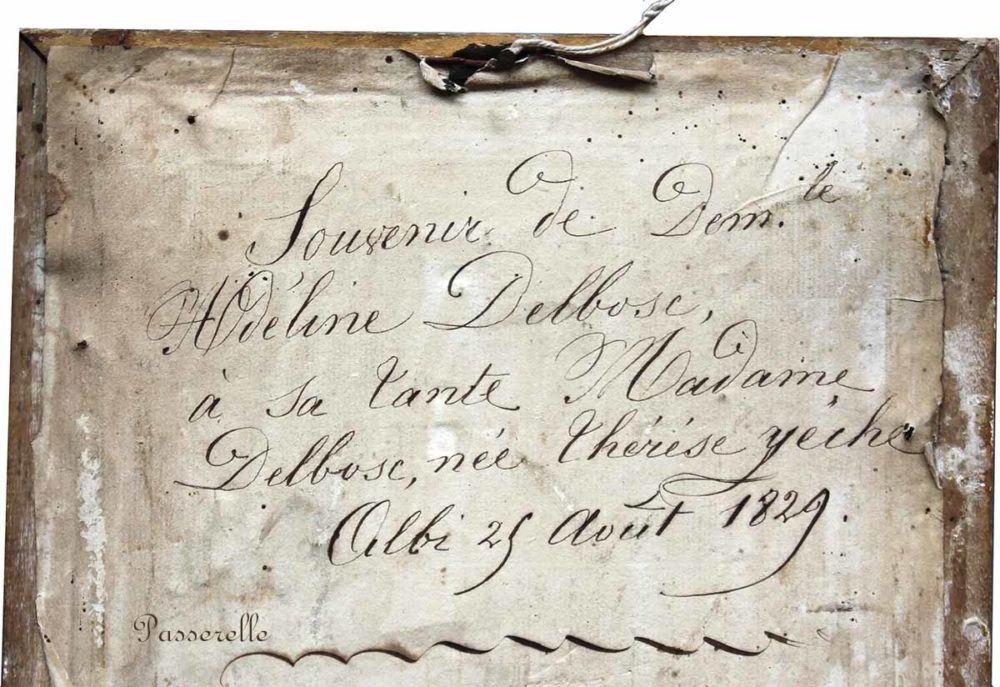 Souvenir de Dem.le
Adéline Delbosc,
à sa tante Madame
Delbosc, née thérése yéche
Albi 25 Août 1829.
Passerelle